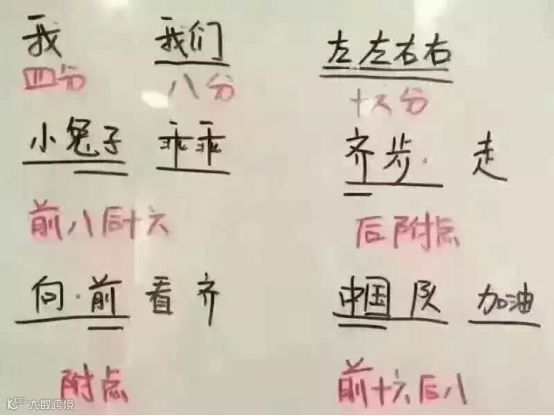 我 我们 左左右右
四分 八分 十六分
小兔子 乖乖 齐步· 走
前八后十六 后附点
向·前看齐 中国队 加油
附点 前十六后八
K○○ 大数跨境